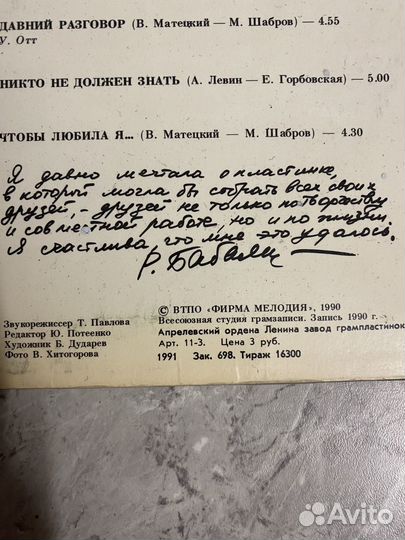 ДАВНИЙ РАЗГОВОР (В. Матецкий — М. Шабров) — 4.55
У. Отт
НИКТО НЕ ДОЛЖЕН ЗНАТЬ (А. Левин — Е. Горбовская) — 5.00
ЧТОБЫ ЛЮБИЛА Я... (В. Матецкий — М. Шабров) — 4.30
Я давно мечтала о пластинке,
в которой могла бы собрать всех своих
друзей, - друзей не только по творчеству
и совместной работе, но и по жизни.
Я счастлива, что мне это удалось.
Р. Бабаян
© ВТПО «ФИРМА МЕЛОДИЯ», 1990
Звукорежиссер Т. Павлова
Всесоюзная студия грамзаписи. Запись 1990 г.
Редактор Ю. Потеенко
Апрелевский ордена Ленина завод грампластинок
Художник Б. Дударев
Арт. 11-3. Цена 3 руб.
Фото В. Хитогорова
1991 Зак. 698. Тираж 16300
Avito